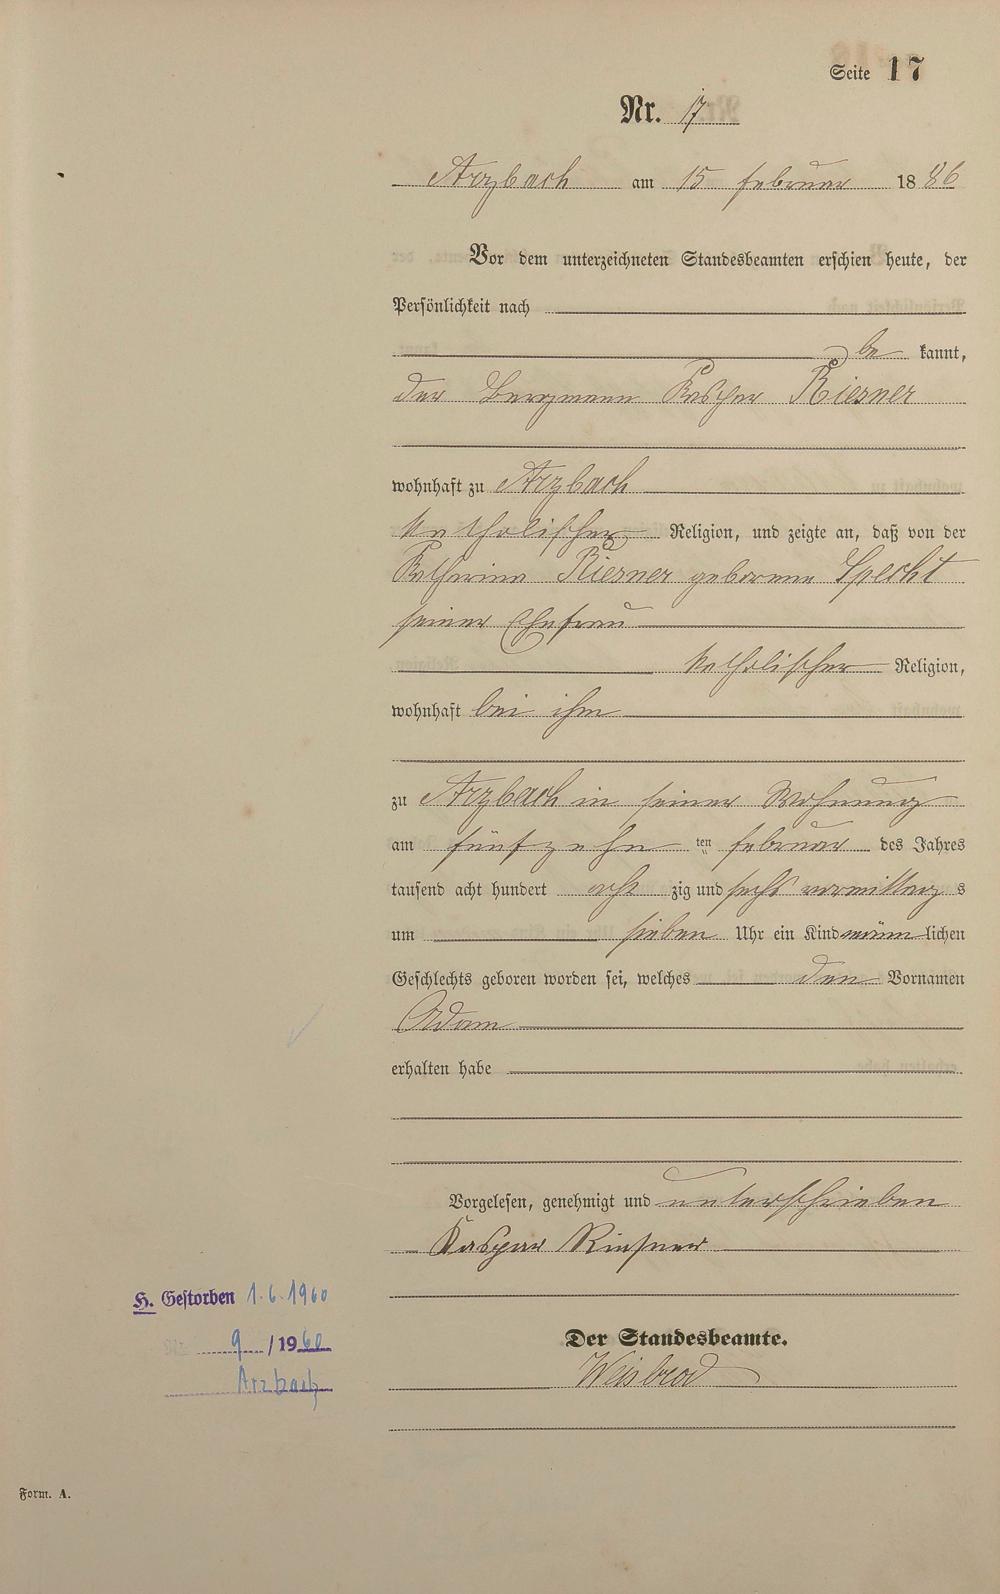 Seite 17
Nr. 17
Arzbach am 15 Februar 1886
Vor dem unterzeichneten Standesbeamten erschien heute, der
Persönlichkeit nach
be kannt,
der Bergmann Kaspar Riesner
wohnhaft zu Arzbach
katholischer Religion, und zeigte an, daß von der
Katharina Riesner geborenen Specht
seiner Ehefrau
katholischer Religion,
wohnhaft bei ihm
zu Arzbach in seiner Wohnung
am fünfzehn ten Februar des Jahres
tausend acht hundert acht zig und sechs vormittag s
um sieben Uhr ein Kind männ lichen
Geschlechts geboren worden sei, welches den Vornamen
Adam
erhalten habe
Vorgelesen, genehmigt und unterschrieben
Kaspar Riesner
H. Gestorben 1.6.1960
Nr. 9 /1960
Arzbach
Der Standesbeamte.
Weisbrod
Form. A.